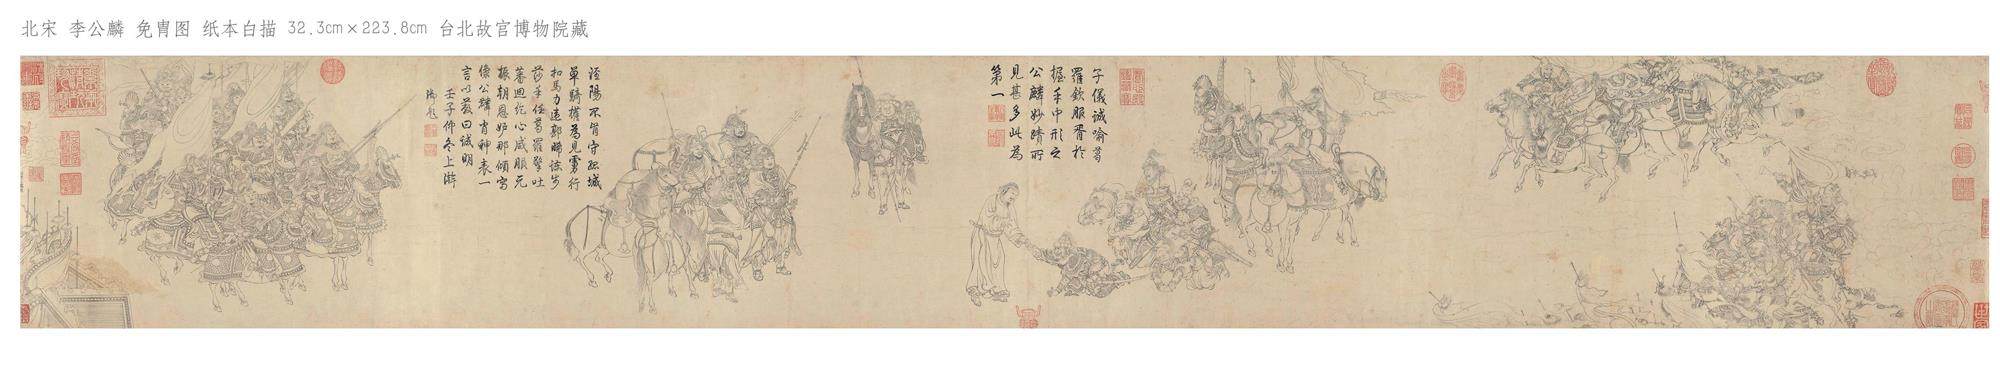 北宋 李公麟 免胄图 纸本白描 32.3cm×223.8cm 台北故宫博物院藏
子儀誠喻葛
羅欽服胥於
握手中形之
公麟妙蹟所
見甚多此為
第一
涇陽不肯守孤城
單騎權為見虜行
扣馬力違郭晞諫步
莎手任葛羅擎吐
蕃迴紇心咸服元
振朝恩妒那傾寫
像公麟胄神表一
言以蔽曰誠明
壬子仲冬上澣
御題